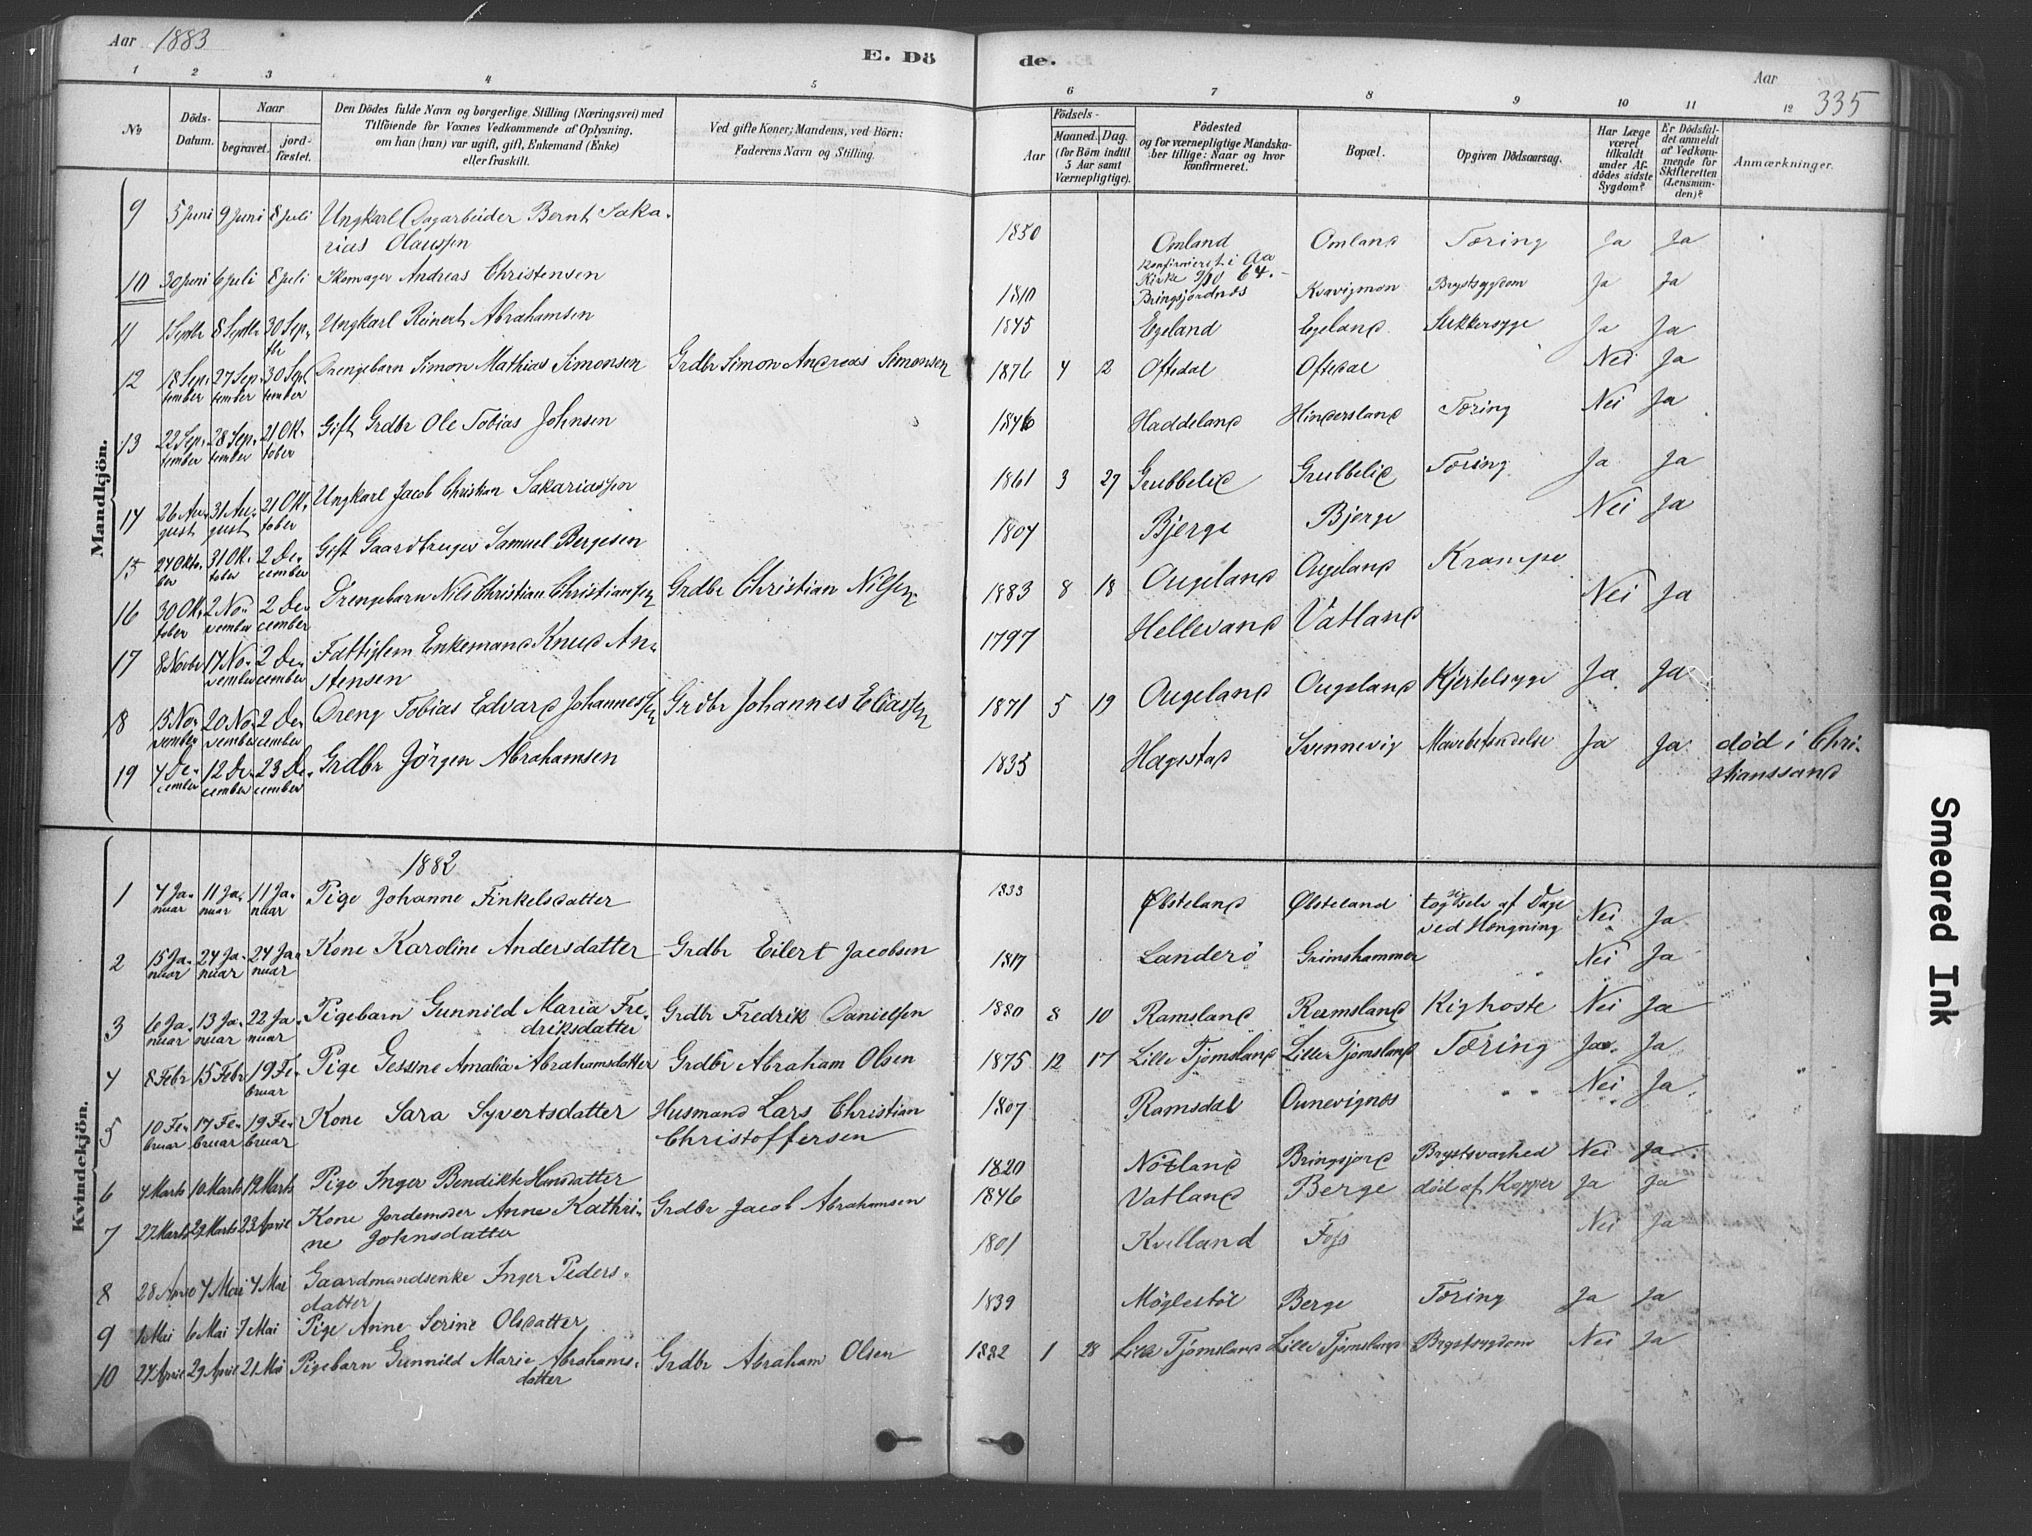 Aar 1883
E. Dö
de.
Aar
335
1 2 3 4 5 6 7 8 9 10 11 12
No
Döds-Datum.
Naar
begravet.
jordfæstet.
Den Dödes fulde Navn og borgerlige Stilling (Næringsvei) med
Tilföiende for Voxnes Vedkommende af Oplysning,
om han (hun) var ugift, gift, Enkemand (Enke)
eller fraskilt.
Ved gifte Koner; Mandens, ved Börn:
Faderens Navn og Stilling.
Födsels-
Aar
Maaned. Dag.
(for Börn indtil
5 Aar samt
Værnepligtige).
Födested
og for værnepligtige Mandska-
ber tillige: Naar og hvor
konfirmeret.
Bopæl.
Opgiven Dödsaarsag.
Har Læge
været
tilkaldt
under Af-
dödes sidste
Sygdom?
Er Dödsfal-
det anmeldt
af Vedkom-
mende for
Skifteretten
(Lensman-
den)?
Anmærkninger.
Mandkjön.
9 5 Juni 9 Juni 8 Juli Ungkarl Dagarbeider Bernt Saka-
rias Olaussen 1850 Omland Omland Tæring Ja Ja
konfirmeret i Aa
Kirke 9/10 64.
10 30 Juni 6 Juli 8 Juli Skomager Andreas Christensen 1810 Bringsjordnes Kvavigmon Brystsygdom Ja Ja
11 1 Septbr 8 Septbr 30 Septb Ungkarl Reinert Abrahamsen 1845 Egeland Egeland Sukkersyge Ja Ja
12 18 September 27 September 30 September Drengebarn Simon Mathias Simonsen Grdbr Simon Andreas Simonsen 1876 4 2 Oftedal Oftedal Nei Ja
13 22 September 28 September 21 Oktober Gift Grdbr Ole Tobias Johnsen 1846 Haddeland Hindersland Tæring Nei Ja
14 26 August 31 August 21 Oktober Ungkarl Jacob Christian Sakariassen 1861 3 27 Grubbelid Grubbelid Tæring Ja Ja
15 24 Oktober 31 Oktober 2 December Gift Gaardbruger Samuel Bergesen 1804 Bjerge Bjerge Nei Ja
16 30 Oktober 2 November 2 December Drengebarn Nils Christian Christianssen Grdbr Christian Nilsen 1883 8 18 Augeland Augeland Krampe
17 8 Novbr 17 November 2 December Fattiglem Enkemand Knud An-
stensen 1797 Hellevand Vatland Nei Ja
18 15 November 20 November 2 December Dreng Tobias Edvard Johannessen Grdbr Johannes Eliassen 1871 5 19 Augeland Augeland Kjertelsyge Ja Ja
19 4 December 12 December 23 December Grdbr Jörgen Abrahamsen 1835 Hagestad Svennevig Mavebetændelse Ja Ja død i Chri-
stianssand
Kvindekjön.
1882
1 4 Januar 11 Januar 11 Januar Pige Johanne Finkelsdatter 1833 Øbsteland Øbsteland tog sig selv af Dage
ved Hængning Nei Ja
2 15 Januar 24 Januar 24 Januar Kone Karoline Andersdatter Grdbr Eilert Jacobsen 1817 Landerö Grimshammer Nei Ja
3 6 Januar 13 Januar 22 Januar Pigebarn Gunnild Maria Fre-
driksdatter Grdbr Fredrik Danielsen 1880 8 10 Ramsland Ramsland Kighoste Nei Ja
4 8 Febr 15 Febr 19 Februar Pige Gessine Amalia Abrahamsdatter Grdbr Abraham Olsen 1875 12 17 Lille Tjomsland Lille Tjomsland Tæring Ja Ja
5 10 Februar 17 Februar 19 Februar Kone Sara Syvertsdatter Husmand Lars Christian
Christoffersen 1807 Ramsdal Nei Ja
6 4 Marts 10 Marts 12 Marts Pige Inger Bendikte Hansdatter 1820 Nötland Bringsjord Brystsvaghed Nei Ja
7 27 Marts 29 Marts 23 April Kone Jordemoder Anne Kathri-
ne Johnsdatter Grdbr Jacob Abrahamsen 1846 Vatland Berge död af Kopper Ja Ja
8 28 April 4 Mai 4 Mai Gaardmandsenke Inger Peders-
datter 1801 Kvelland Foss Nei Ja
9 1 Mai 6 Mai 7 Mai Pige Anne Serine Olsdatter 1839 Möglestöl Berge Tæring Ja Ja
10 24 April 29 April 21 Mai Pigebarn Gunnild Marie Abrahams-
datter Grdbr Abraham Olsen 1882 1 28 Lille Tjomsland Lille Tjomsland Brystsygdom Nei Ja
Smeared Ink